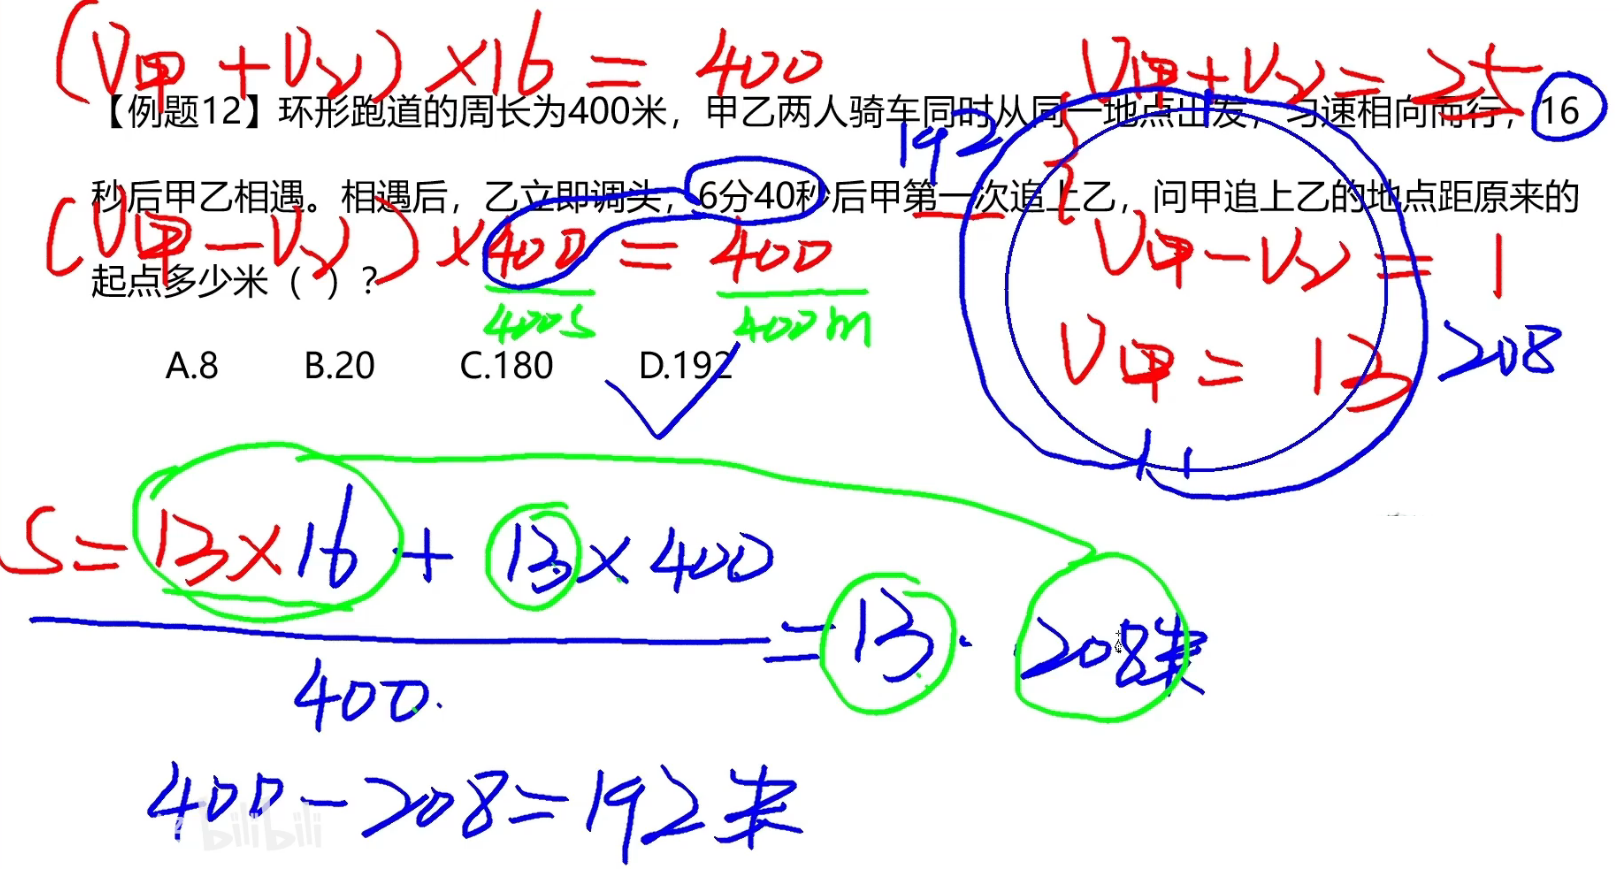 (V甲+V乙)×16=400
V甲+V乙=25
【例题12】环形跑道的周长为400米，甲乙两人骑车同时从同一地点出发，匀速相向而行，16
192
秒后甲乙相遇。相遇后，乙立即调头，6分40秒后甲第一次追上乙，问甲追上乙的地点距原来的
(V甲-V乙)×400=400
V甲-V乙=1
起点多少米（ ）？
400s
400m
V甲=13
208
A.8 B.20 C.180 D.192
S=13×16+13×400
400
=13. 208米
400-208=192米
bilibili